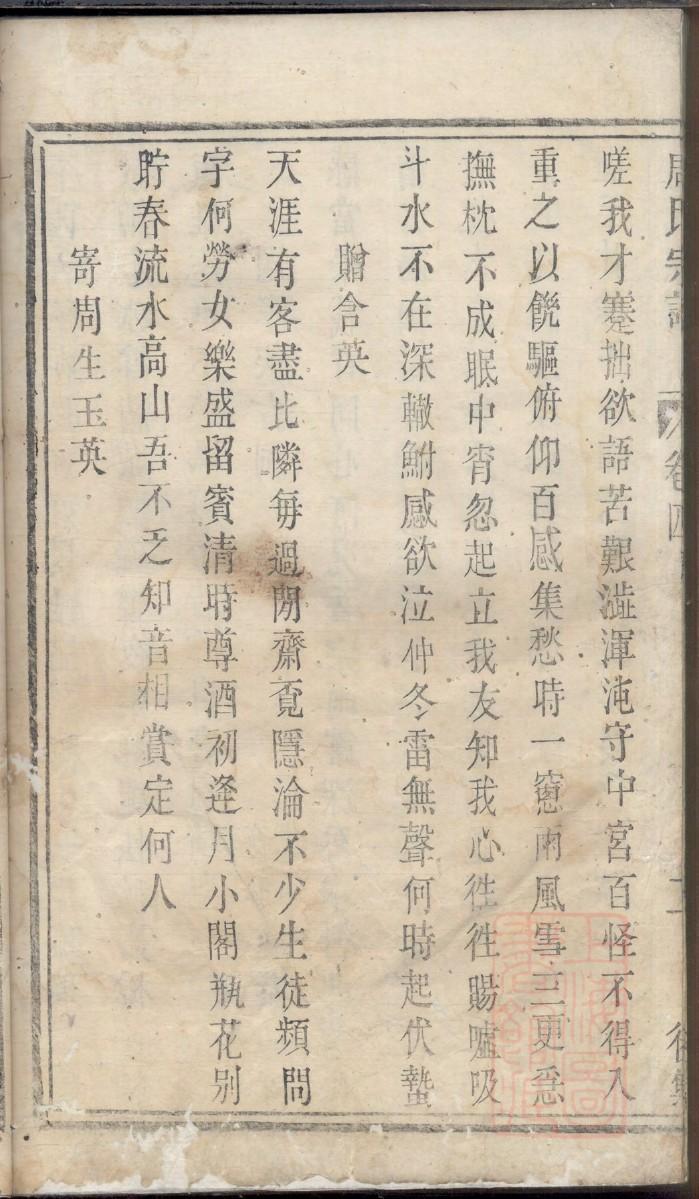 周氏宗譜 卷四 二
嗟我才蹇拙欲語苦艱澁渾沌守中宮百怪不得入
重之以饑驅俯仰百感集愁時一窓雨風雪三更急
撫枕不成眠中宵忽起立我友知我心徃徃賜噓吸
斗水不在深轍鮒感欲泣仲冬雷無聲何時起伏蟄
贈含英
天涯有客盡比隣每過閒齋覔隱淪不少生徒頻問
字何勞女樂盛留賓清時尊酒初逢月小閣瓶花别
貯春流水高山吾不乏知音相賞定何人
寄周生玉英